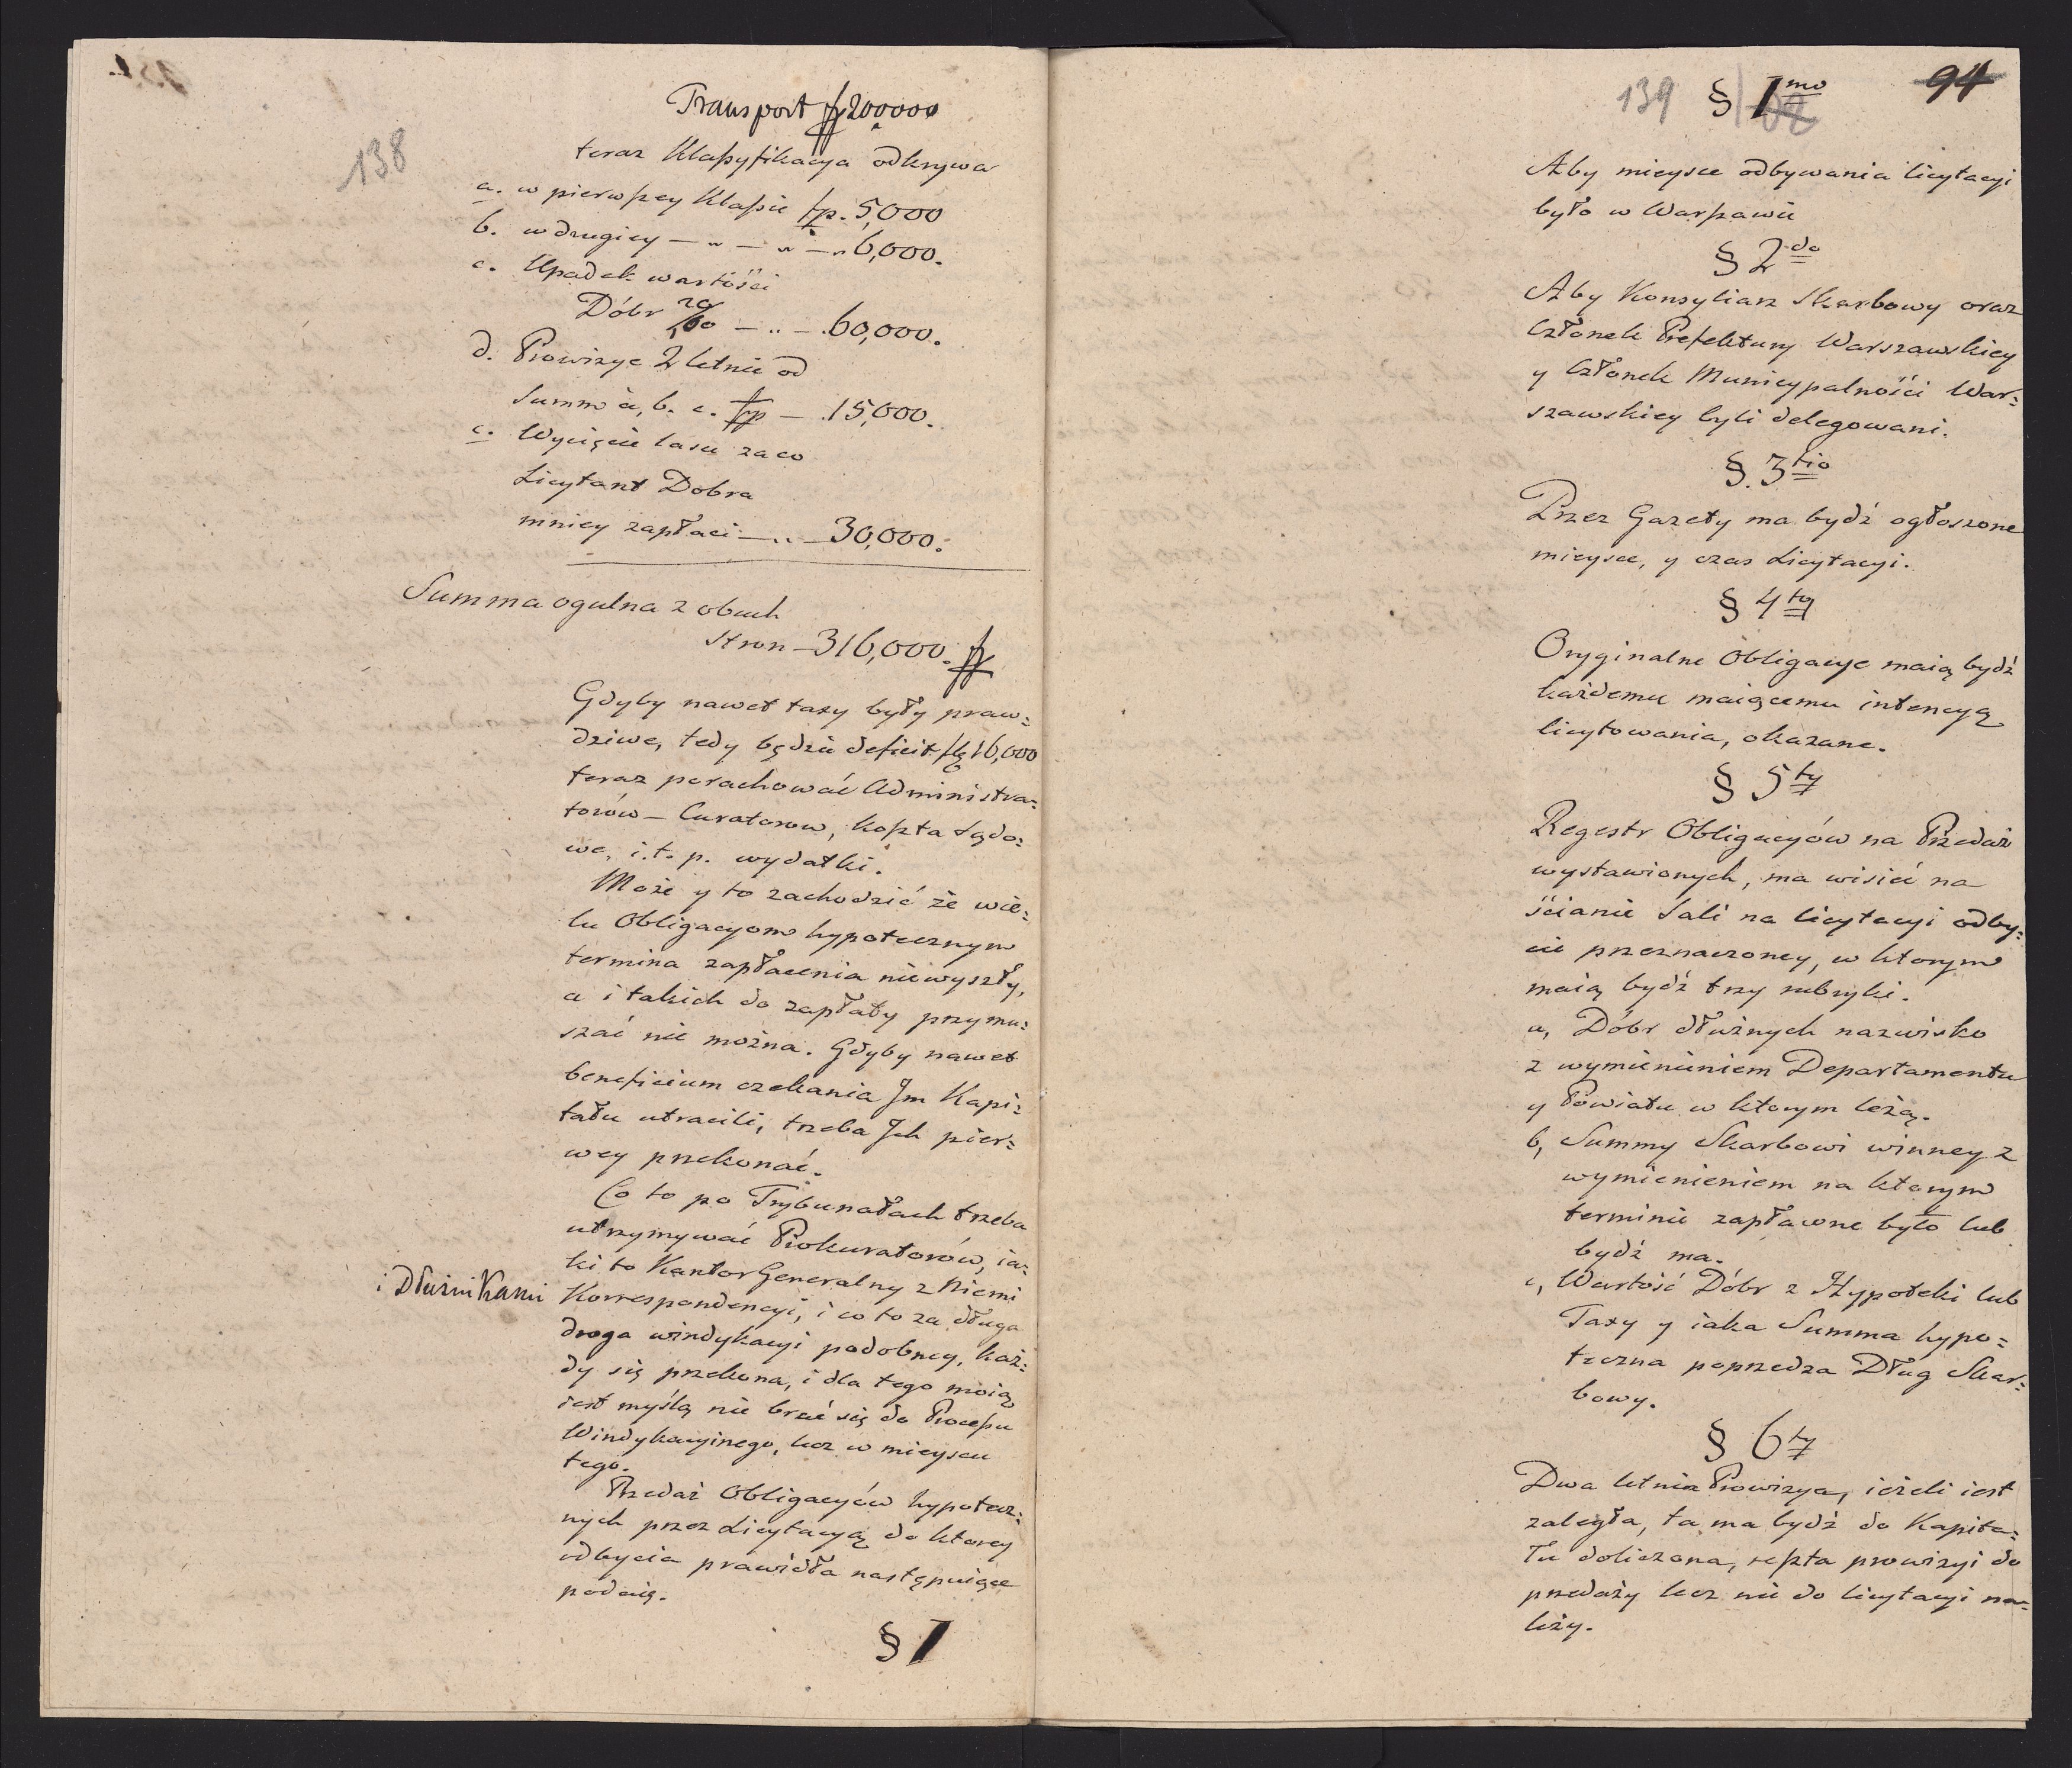 138
Transport fp 200000
teraz Klassyfikacya odkrywa
a. w pierwszey Klassie fp. 5,000
b. w drugiey — " — " — " 6,000.
c. Upadek wartości
Dóbr — " — . 60,000.
d. Prowizye 2 letnie od
Summ a, b. c. fp — . 15,000.
e. Wycięcie lasu za co
Licytant Dobra
mniey zapłaci — " — 30,000.
Summa ogulna z obuch
Stron — 316,000. fp
Gdyby nawet taxy były praw:
dziwe, tedy będzie deficit fp 16,000
teraz porachować Administra:
torów — Curatorow, koszta sądo:
we, i. t. p. wydatki.
Może y to zachodzić że wie:
lu Obligacyom hypotecznym
termina zapłacenia niewyszły,
a i takich do zapłaty przymu:
szać nie można. Gdyby nawet
beneficium czekania Jm Kapi:
tału utracili, trzeba Jch pier:
wey przekonać.
Co to po Trybunałach trzeba
utrzymywać Prokuratorów, ia:
ki to Kantor Generalny z Niemi
i Dłużnikami Korrespondencyi, i co to za długa
droga windykacyi podobney, każ:
dy się przekona, i dla tego moią
iest myślą nie brać się do Processu
Windykacyinego, lecz w mieyscu
tego.
Przedaż Obligacyów hypotecz:
nych przez Licytacyą do ktorey
odbycia prawidła następuiące
podaię.
§ 1
139 § 1mo 94
Aby mieysce odbywania licytacyi
było w Warszawie
§ 2do
Aby Konsyliarz Skarbowy oraz
Członek Prefektury Warszawskiey
y Członek Municypalności War:
szawskiey byli delegowani.
§. 3tio
Przez Gazety ma bydź ogłoszone
mieysce, y czas Licytacyi.
§ 4ty
Oryginalne Obligacye maią bydź
każdemu maiącemu intencyą
licytowania, okazane.
§ 5ty
Regestr Obligacyów na Przedaż
wystawionych, ma wisieć na
ścianie Sali na licytacyi odby:
cie przeznaczoney, w ktorym
maią bydź trzy rubryki.
a, Dóbr dłużnych nazwisko
z wymienieniem Departamentu
y Powiatu w ktorym leżą.
b, Summy Skarbowi winney z
wymienieniem na ktorym
terminie zapławne było lub
bydź ma.
c, Wartość Dóbr z Hypoteki lub
Taxy y iaka Summa hypo:
teczna poprzedza Dług Skar:
bowy.
§ 6ty
Dwa letnia Prowizya, ieżeli iest
zaległa, ta ma bydź do Kapita:
łu doliczona, reszta prowizyi do
przedaży lecz nie do licytacyi na:
leży.